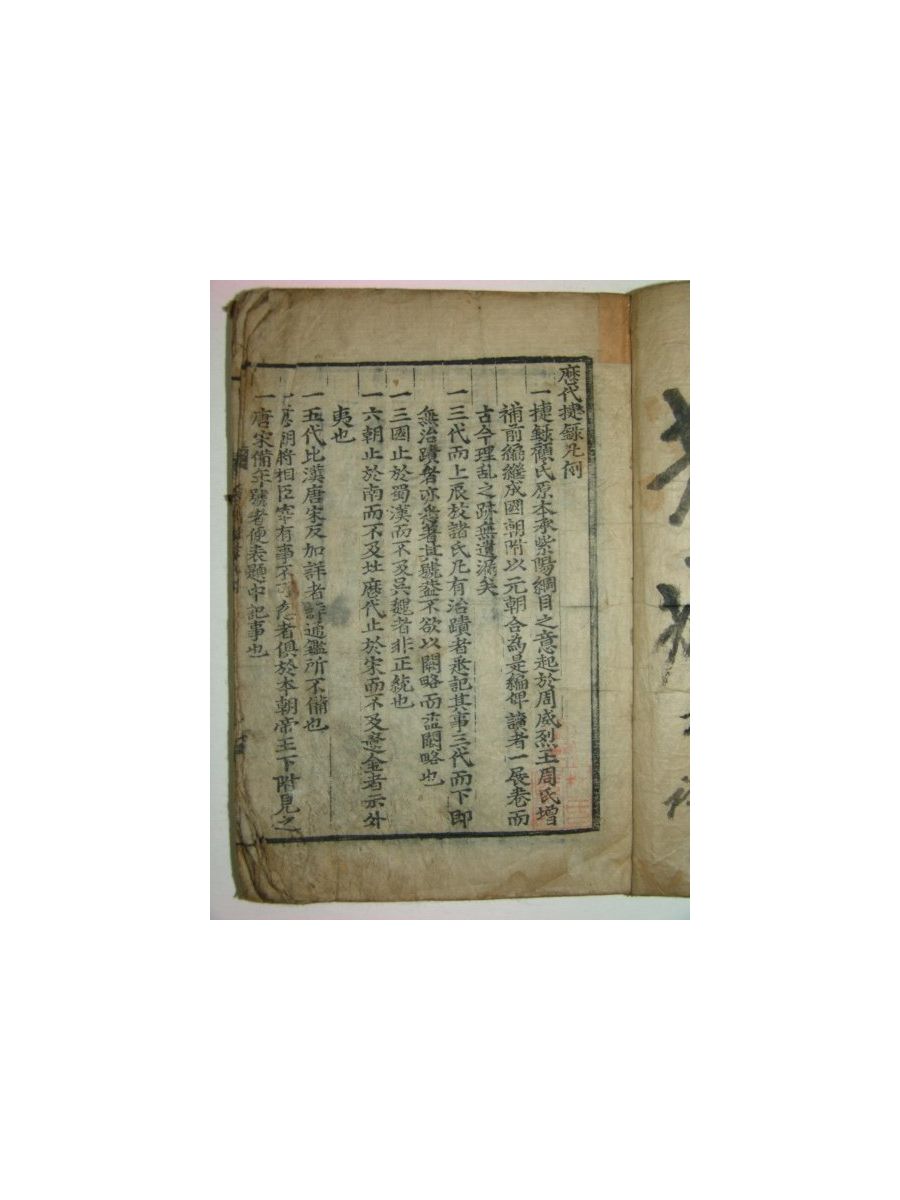 歴代捷録凡例
一捷録顧氏原本承紫陽綱目之意起於周威烈王周氏增
補前編継成國朝附以元朝合為是編俾讀者一展卷而
古今理乱之跡無遺漏矣
一三代而上辰放諸氏凡有治蹟者丞記其事三代而下即
無治蹟者亦無著其號盖不欲以闕略而益闕略也
一三國止於蜀漢而不及吳魏者非正統也
一六朝止於南而不及北歴代止於宋而不及遼金者示外
夷也
一五代比漢唐宋反加詳者詳通鑑所不備也
一 朝將相臣宰有事不可 者俱於本朝帝王下附見之
一唐宋備年號者便表題中記事也